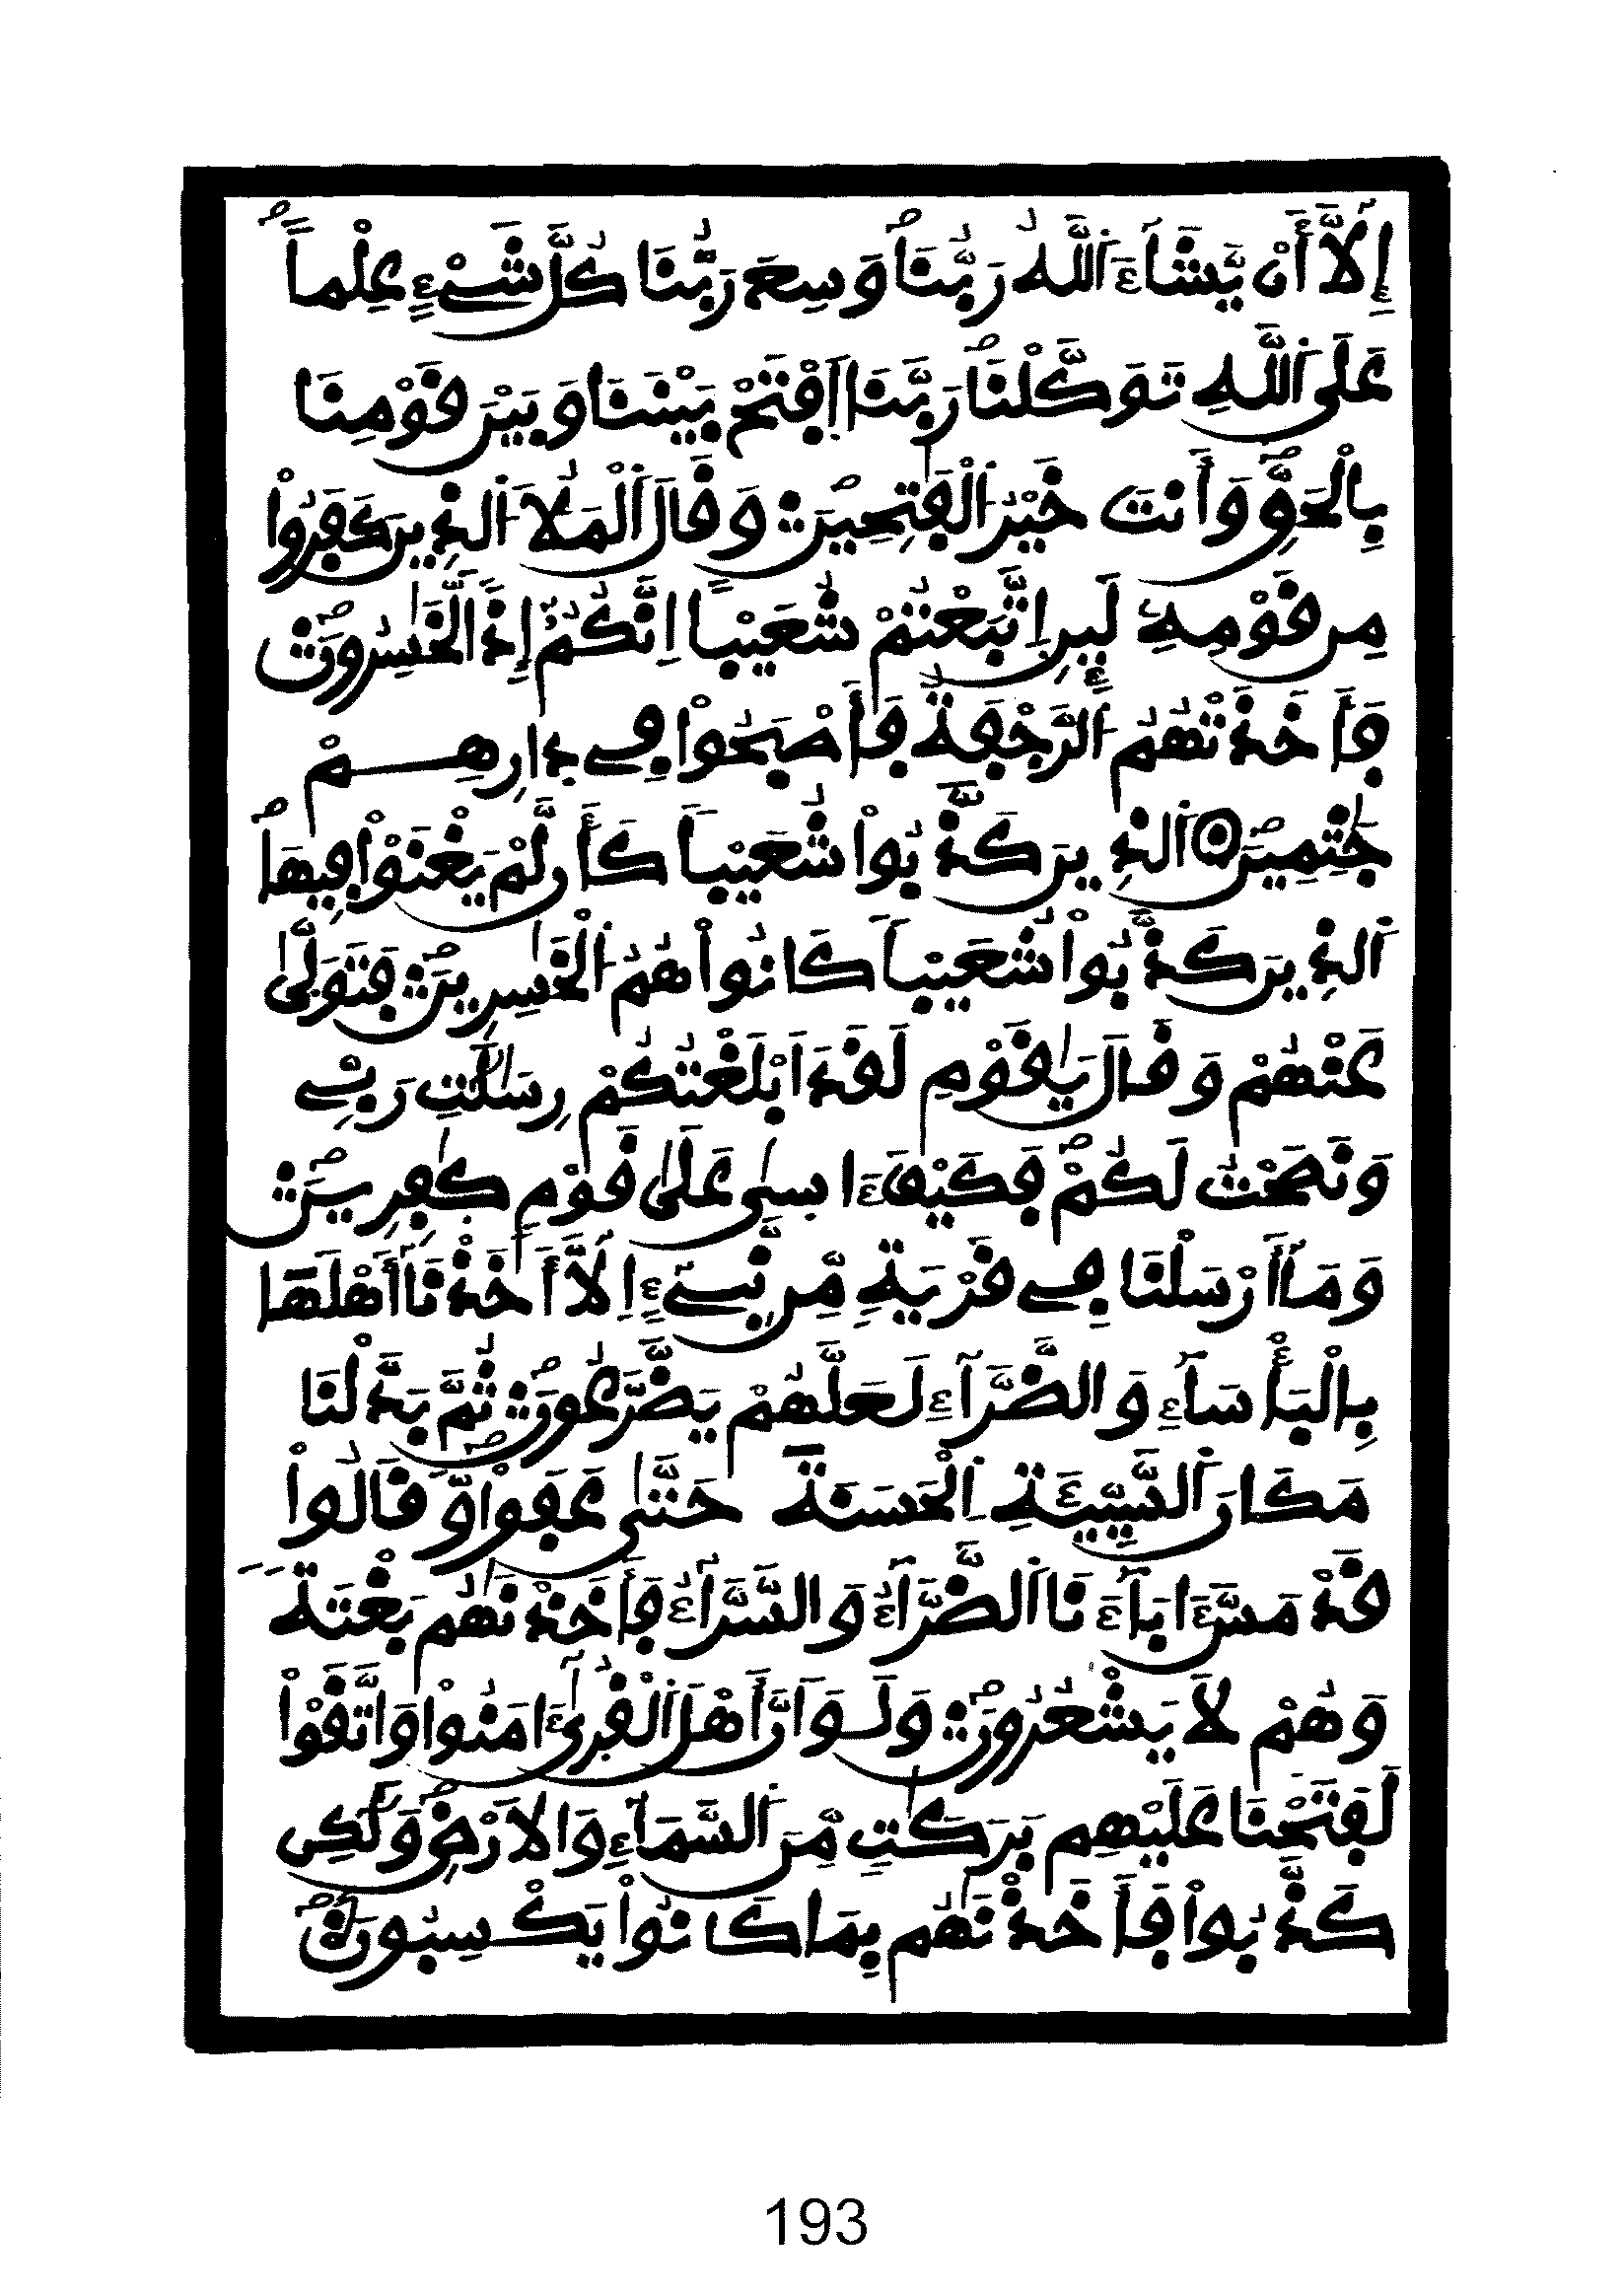 إِلَّا أَنْ يَّشَآءَ اَ۬للَّهُ رَبُّنَاۖ وَسِعَ رَبُّنَا كُلَّ شَےْءٍ عِلْماًۖ
عَلَى اَ۬للَّهِ تَوَكَّلْنَاۖ رَبَّنَا اَ۪فْتَحْ بَيْنَنَا وَبَيْنَ قَوْمِنَا
بِالْحَقِّۖ وَأَنتَ خَيْرُ اُ۬لْفَٰتِحِينَۖ ۞ وَقَالَ اَ۬لْمَلَأُ اُ۬لذِينَ كَفَرُواْ
مِن قَوْمِهِۦ لَئِنِ اِ۪تَّبَعْتُمْ شُعَيْباً اِنَّكُمُۥٓ إِذاً لَّخَٰسِرُونَۖ
فَأَخَذَتْهُمُ اُ۬لرَّجْفَةُ فَأَصْبَحُواْ فِے دِارِهِمْ
جَٰثِمِينَۖ اَ۬لذِينَ كَذَّبُواْ شُعَيْباً كَأَن لَّمْ يَغْنَوْاْ فِيهَاۖ
اَ۬لذِينَ كَذَّبُواْ شُعَيْباً كَانُواْ هُمُ اُ۬لْخَٰسِرِينَۖ فَتَوَلّ۪ىٰ
عَنْهُمْ وَقَالَ يَٰقَوْمِ لَقَدَ اَبْلَغْتُكُمْ رِسَٰلَٰتِ رَبِّے
وَنَصَحْتُ لَكُمْۖ فَكَيْفَ ءَاس۪ىٰ عَلَىٰ قَوْمٍ كٰ۪فِرِينَۖ
وَمَآ أَرْسَلْنَا فِے قَرْيَةٍ مِّن نَّبِےٓءٍ اِلَّآ أَخَذْنَآ أَهْلَهَا
بِالْبَأْسَآءِ وَالضَّرَّآءِ لَعَلَّهُمْ يَضَّرَّعُونَۖ ثُمَّ بَدَّلْنَا
مَكَانَ اَ۬لسَّيِّئَةِ اِ۬لْحَسَنَةَ حَتَّىٰ عَفَواْ وَّقَالُواْ
قَدْ مَسَّ ءَابَآءَنَا اَ۬لضَّرَّآءُ وَالسَّرَّآءُ فَأَخَذْنَٰهُم بَغْتَةً
وَهُمْ لَا يَشْعُرُونَۖ وَلَوَ اَنَّ أَهْلَ اَ۬لْقُر۪ىٰٓ ءَامَنُواْ وَاتَّقَوْاْ
لَفَتَحْنَا عَلَيْهِم بَرَكَٰتٍ مِّنَ اَ۬لسَّمَآءِ وَالَارْضِۖ وَلَٰكِن
كَذَّبُواْ فَأَخَذْنَٰهُم بِمَا كَانُواْ يَكْسِبُونَۖ
193